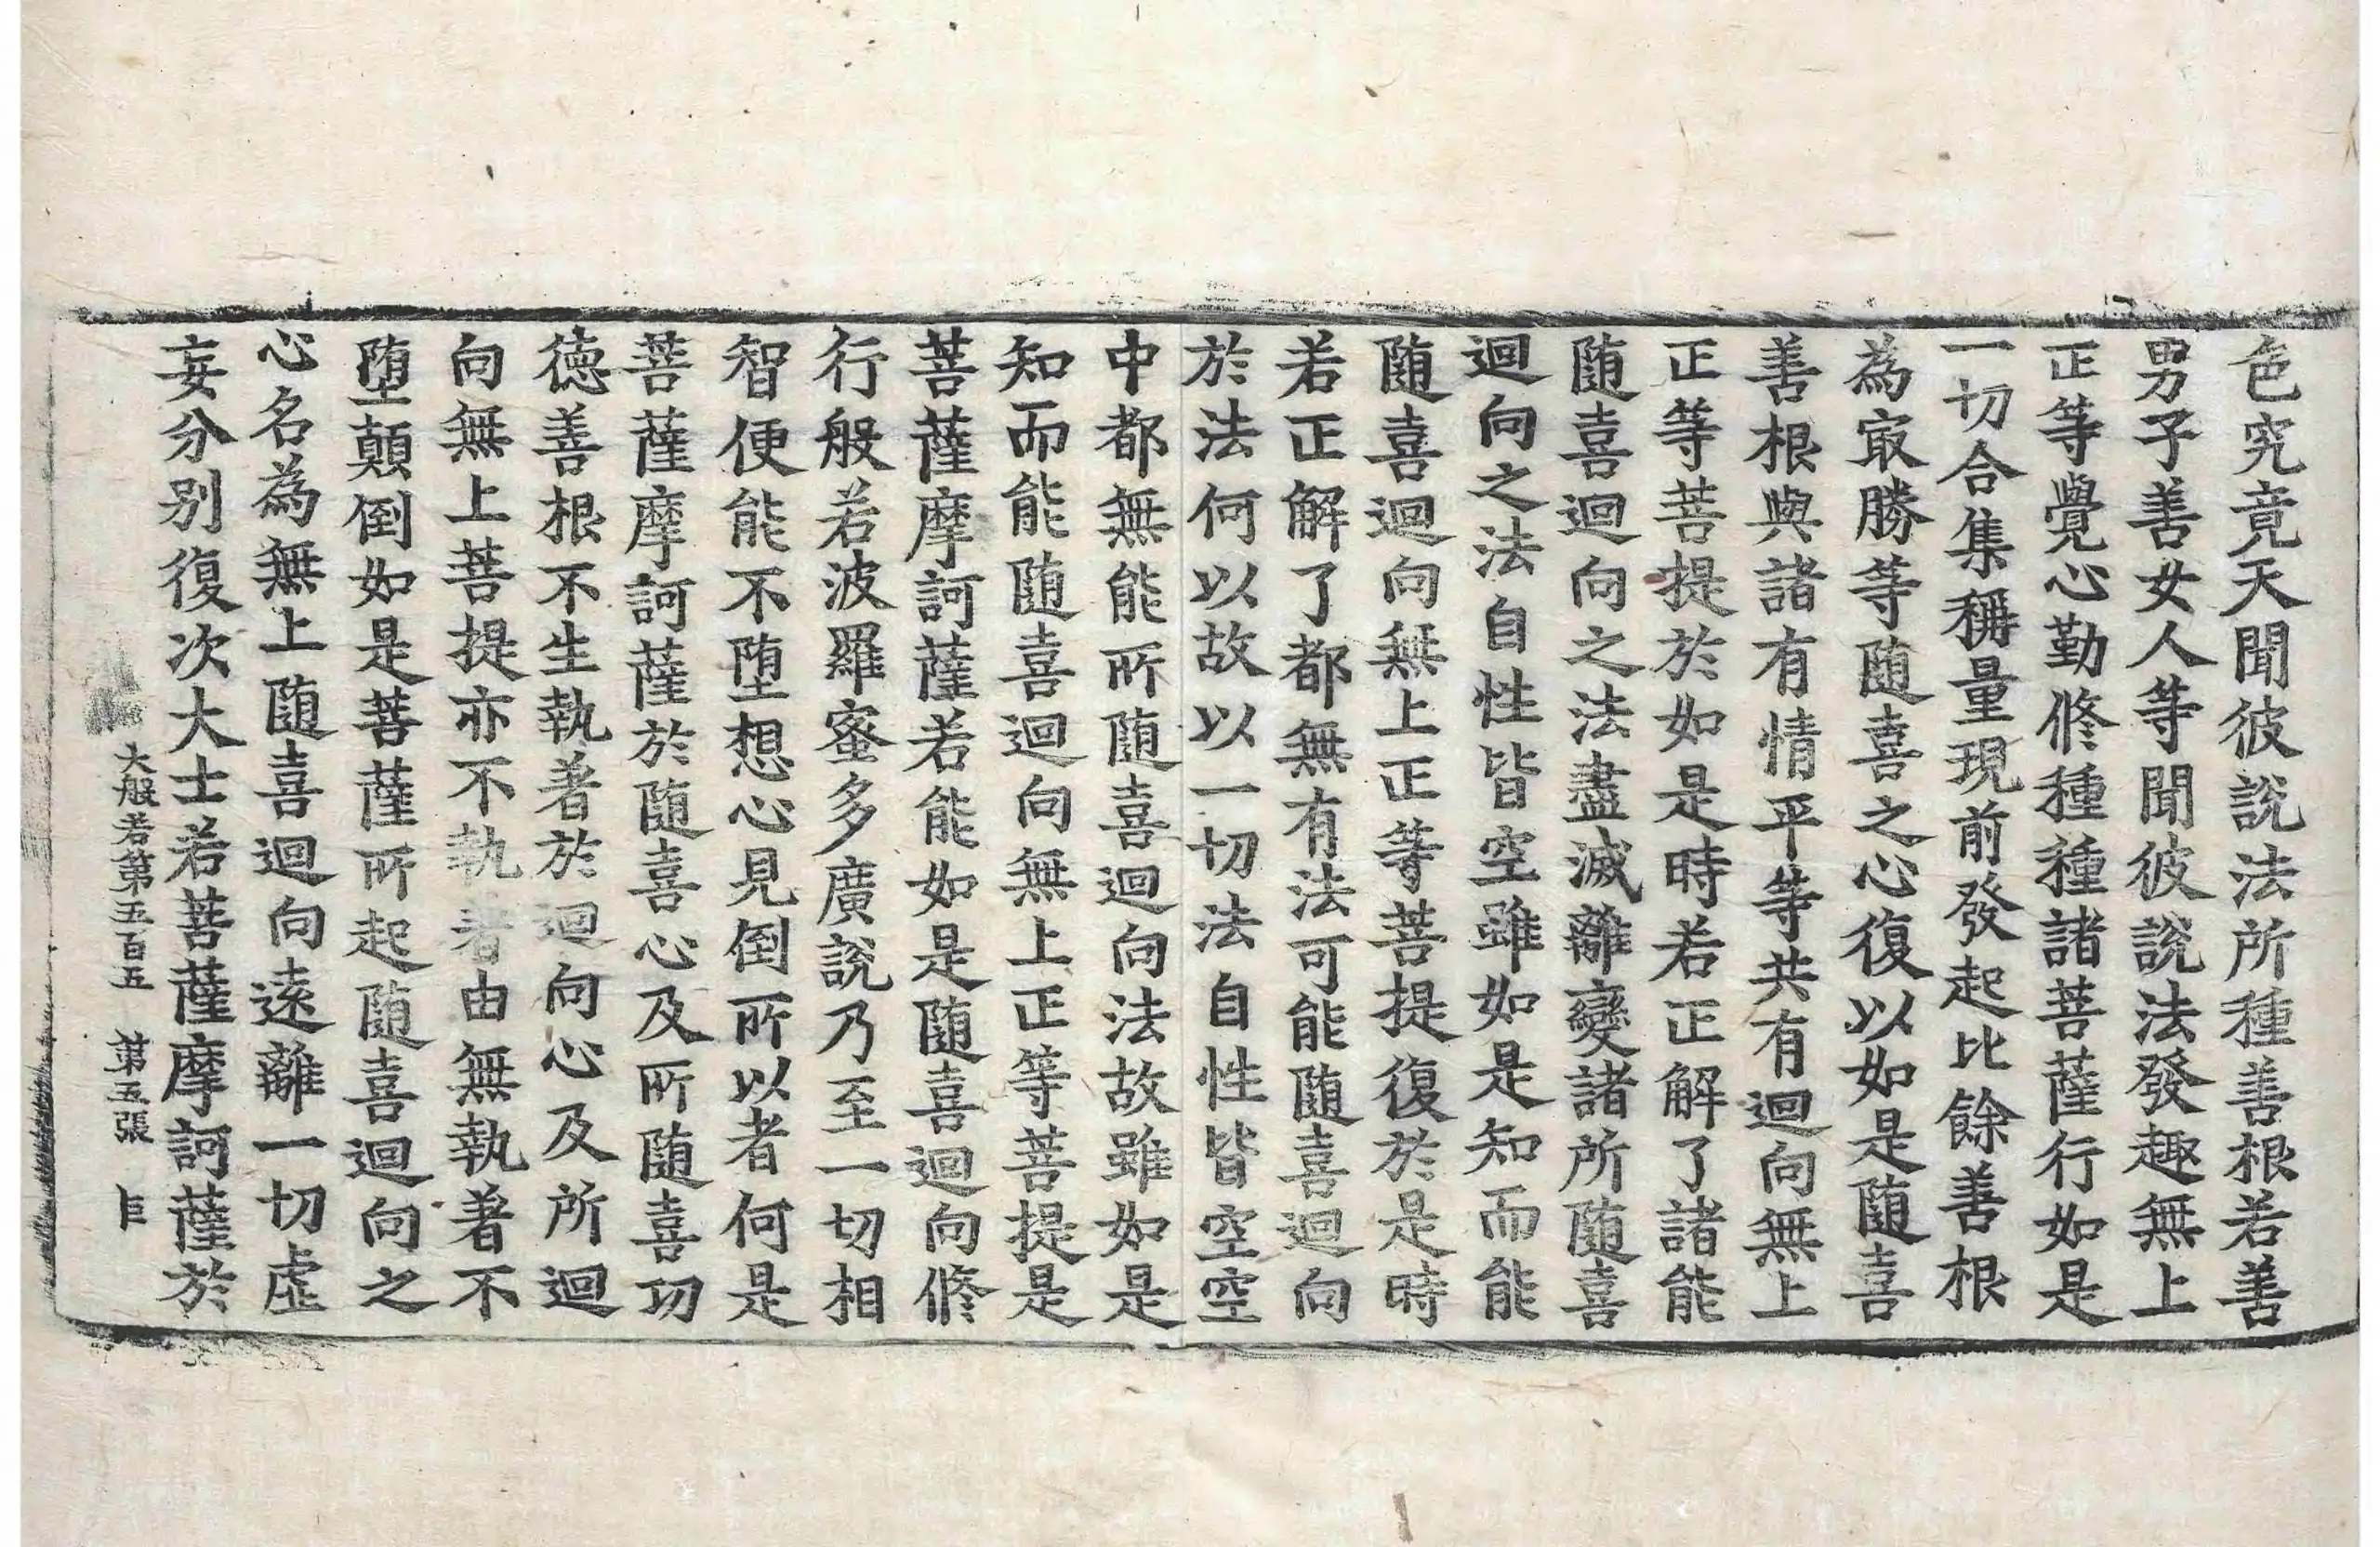 色究竟天聞彼說法所種善根若善
男子善女人等聞彼說法發趣無上
正等覺心勤修種種諸菩薩行如是
一切合集稱量現前發起比餘善根
為㝡勝等随喜之心復以如是随喜
善根與諸有情平等共有迴向無上
正等菩提於如是時若正解了諸能
随喜迴向之法盡滅離變諸所随喜
迴向之法自性皆空雖如是知而能
随喜迴向無上正等菩提復於是時
若正解了都無有法可能随喜迴向
於法何以故以一切法自性皆空空
中都無能所随喜迴向法故雖如是
知而能随喜迴向無上正等菩提是
菩薩摩訶薩若能如是随喜迴向修
行般若波羅蜜多廣說乃至一切相
智便能不墮想心見倒所以者何是
菩薩摩訶薩於随喜心及所随喜功
德善根不生執著於迴向心及所迴
向無上菩提亦不執著由無執著不
墮顛倒如是菩薩所起随喜迴向之
心名為無上随喜迴向遠離一切虛
妄分別復次大士若菩薩摩訶薩於
大般若第五百五 第五張 㠯